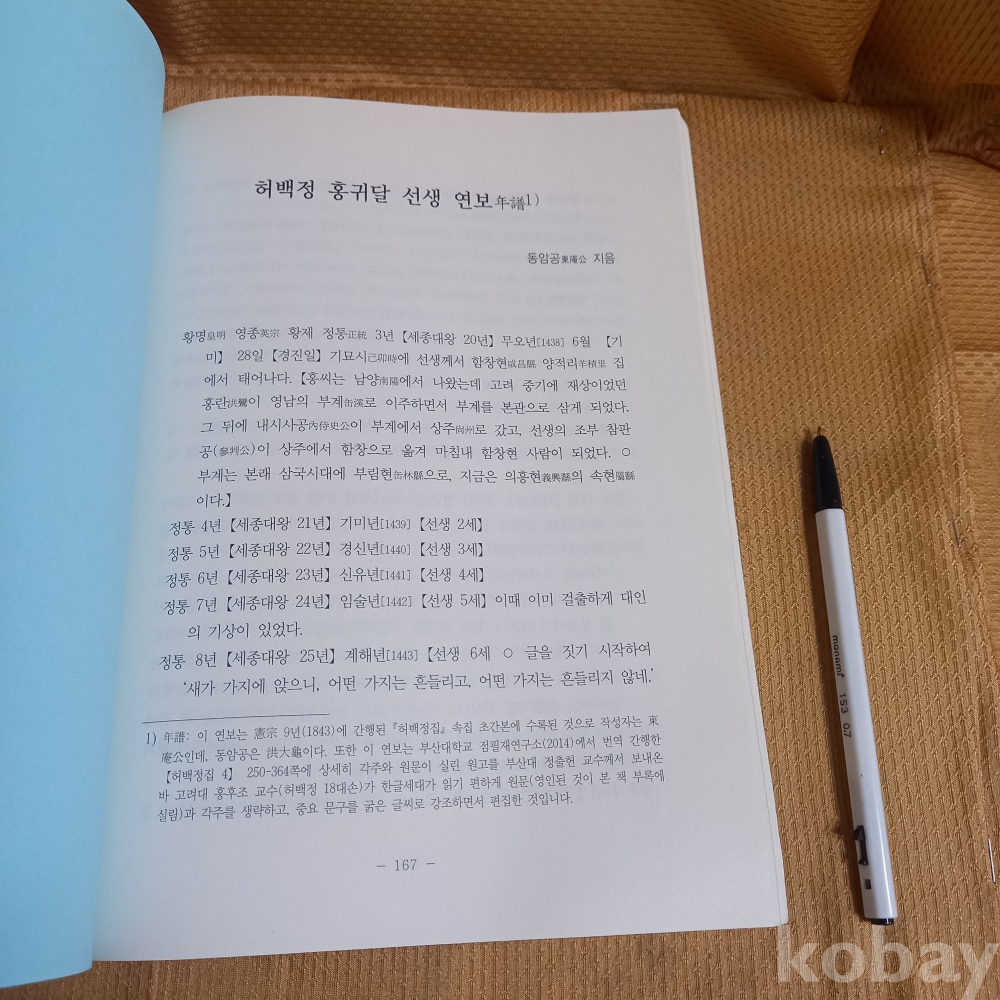 허백정 홍귀달 선생 연보年譜1)
동암공東庵公 지음
황명皇明 영종英宗 황제 정통正統 3년 【세종대왕 20년】 무오년[1438] 6월 【기
미】 28일 【경진일】 기묘시己卯時에 선생께서 함창현咸昌縣 양적리羊積里 집
에서 태어나다. 【홍씨는 남양南陽에서 나왔는데 고려 중기에 재상이었던
홍란洪鸞이 영남의 부계缶溪로 이주하면서 부계를 본관으로 삼게 되었다.
그 뒤에 내시사공內侍史公이 부계에서 상주尙州로 갔고, 선생의 조부 참판
공(參判公)이 상주에서 함창으로 옮겨 마침내 함창현 사람이 되었다. ○
부계는 본래 삼국시대에 부림현缶林縣으로, 지금은 의흥현義興縣의 속현屬縣
이다.】
정통 4년 【세종대왕 21년】 기미년[1439] 【선생 2세】
정통 5년 【세종대왕 22년】 경신년[1440] 【선생 3세】
정통 6년 【세종대왕 23년】 신유년[1441] 【선생 4세】
정통 7년 【세종대왕 24년】 임술년[1442] 【선생 5세】 이때 이미 걸출하게 대인
의 기상이 있었다.
정통 8년 【세종대왕 25년】 계해년[1443] 【선생 6세 ○ 글을 짓기 시작하여
‘새가 가지에 앉으니, 어떤 가지는 흔들리고, 어떤 가지는 흔들리지 않네.’
1) 年譜: 이 연보는 憲宗 9년(1843)에 간행된 『허백정집』 속집 초간본에 수록된 것으로 작성자는 東
庵公인데, 동암공은 洪大龜이다. 또한 이 연보는 부산대학교 점필재연구소(2014)에서 번역 간행한
【허백정집 4】 250-364쪽에 상세히 각주와 원문이 실린 원고를 부산대 정출헌 교수께서 보내온
바 고려대 홍후조 교수(허백정 18대손)가 한글세대가 읽기 편하게 원문(영인된 것이 본 책 부록에
실림)과 각주를 생략하고, 중요 문구를 굵은 글씨로 강조하면서 편집한 것입니다.
- 167 -
monami 153 0.7
kobay